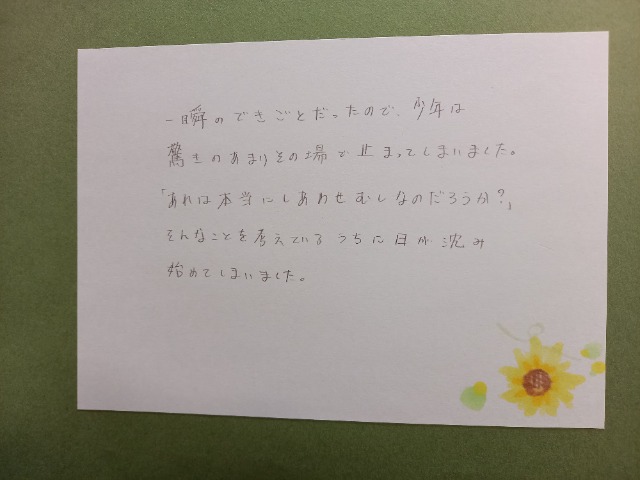 一瞬のできごとだったので、少年は
驚きのあまりその場で止まってしまいました。
「あれは本当にしあわせむしなのだろうか?」
そんなことを考えているうちに日が沈み
始めてしまいました。